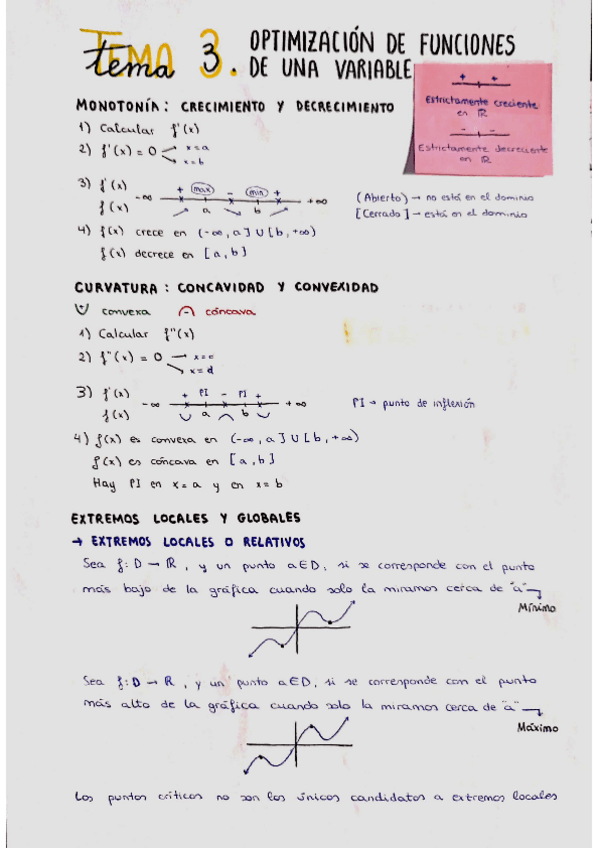 Tema 3. OPTIMIZACIÓN DE FUNCIONES
DE UNA VARIABLE
+ +
Estrictamente creciente
en ℝ
- -
Estrictamente decreciente
en ℝ
MONOTONÍA: CRECIMIENTO Y DECRECIMIENTO
1) Calcular f'(x)
2) f'(x) = 0 → x=a
→ x=b
3) f'(x) + max - min +
f(x) -∞ a b +∞
(Abierto) → no está en el dominio
[Cerrado] → está en el dominio
4) f(x) crece en (-∞, a] U [b, +∞)
f(x) decrece en [a, b]
CURVATURA: CONCAVIDAD Y CONVEXIDAD
∪ convexa ∩ cóncava
1) Calcular f''(x)
2) f''(x) = 0 → x=c
→ x=d
3) f'(x) + PI - PI +
f(x) -∞ ∪ a ∩ b ∪ +∞
PI → punto de inflexión
4) f(x) es convexa en (-∞, a] U [b, +∞)
f(x) es cóncava en [a, b]
Hay PI en x=a y en x=b
EXTREMOS LOCALES Y GLOBALES
→ EXTREMOS LOCALES O RELATIVOS
Sea f: D → ℝ, y un punto a∈D, si se corresponde con el punto
más bajo de la gráfica cuando solo la miramos cerca de "a" →
Mínimo
Sea f: D → ℝ, y un punto a∈D, si se corresponde con el punto
más alto de la gráfica cuando solo la miramos cerca de "a" →
Máximo
Los puntos críticos no son los únicos candidatos a extremos locales